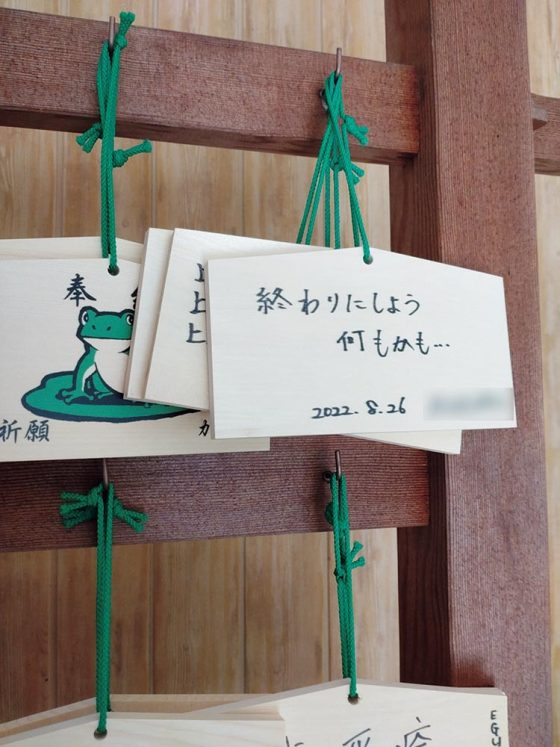 奉
祈願
上
上
上
終わりにしよう
何もかも...
2022.8.26